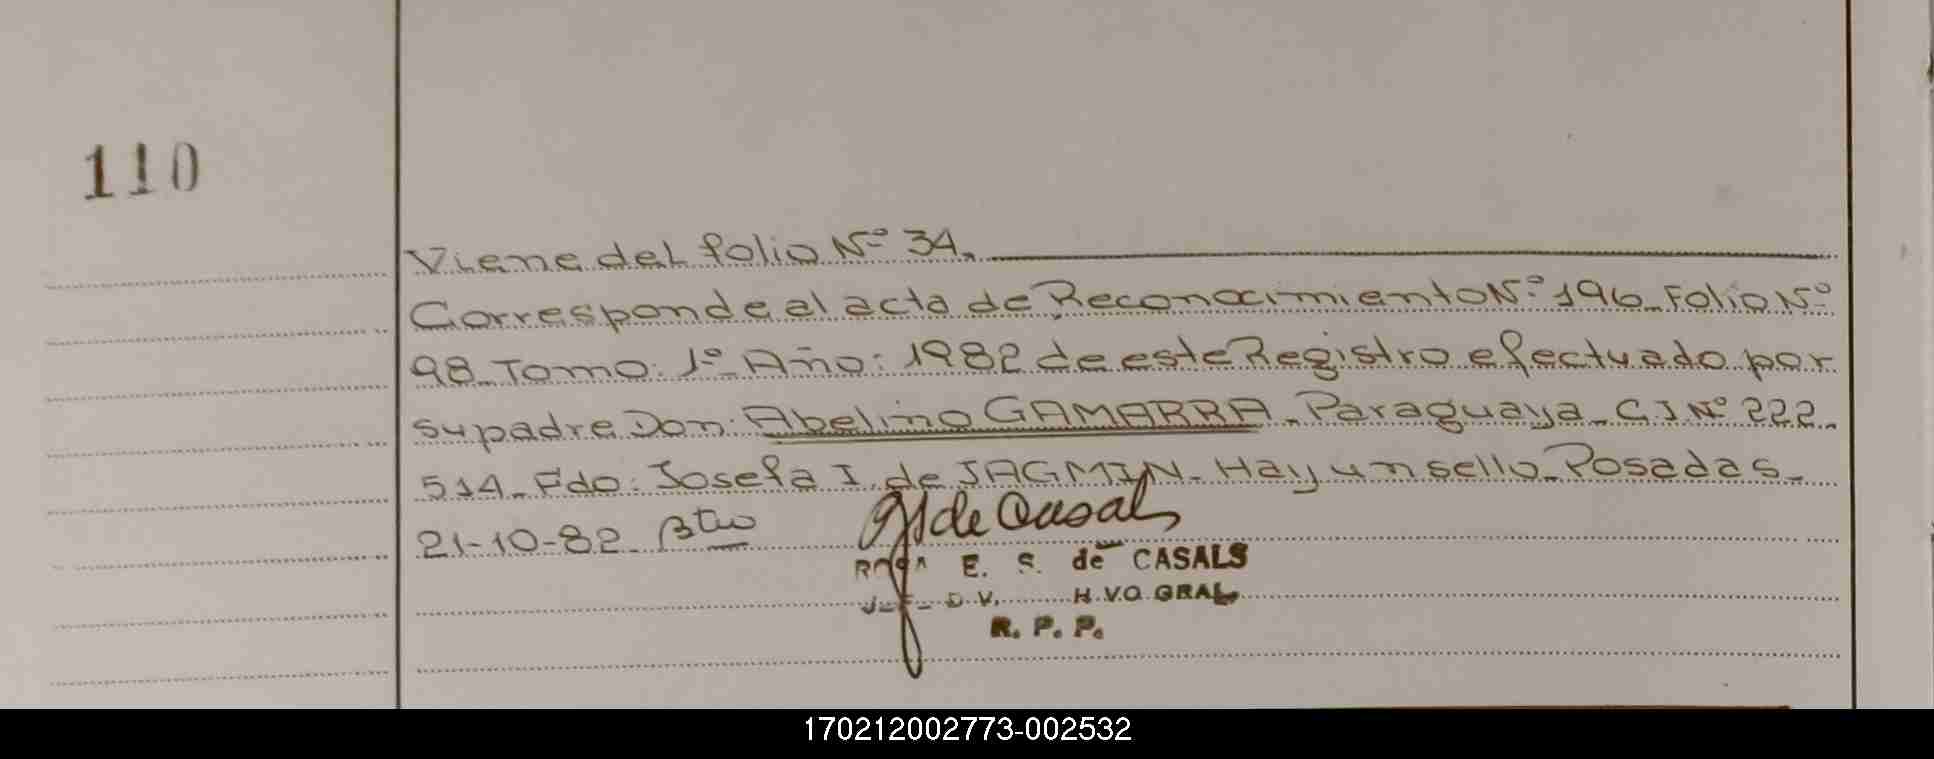 110
Viene del folio Nº 34.
Corresponde al acta de Reconocimiento Nº 196_Folio Nº
98_Tomo: 1º_Año: 1982 de este Registro efectuado por
su padre Don: Abelino GAMARRA_Paraguaya_C.I Nº 222.
514_Fdo: Josefa I. de JAGMIN_Hay un sello_Posadas_
21-10-82_
de Casals
E. S. de CASALS
D V. H.VO GRAL
R. P. P.
170212002773-002532